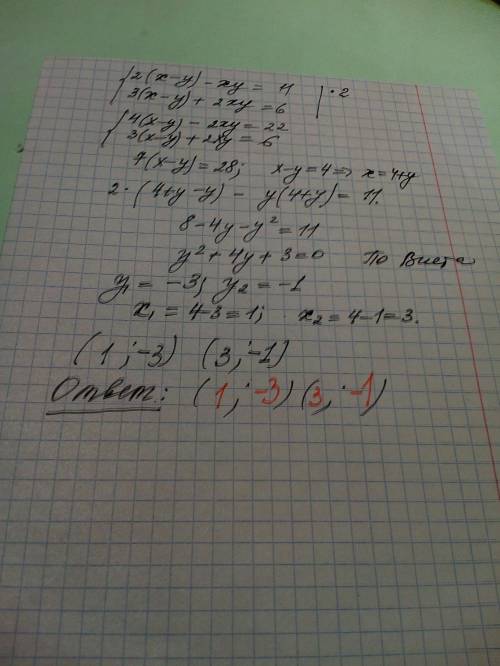 2(x-y) - xy = 11 | ·2
3(x-y) + 2xy = 6
4(x-y) - 2xy = 22
3(x-y) + 2xy = 6
7(x-y) = 28; x-y = 4 => x = 4+y
2·(4+y-y) - y(4+y) = 11.
8-4y-y² = 11
y² + 4y + 3 = 0 По Виета
y₁ = -3; y₂ = -1
x₁ = 4-3 = 1; x₂ = 4-1 = 3.
(1; -3) (3; -1)
Ответ: (1; -3) (3; -1)